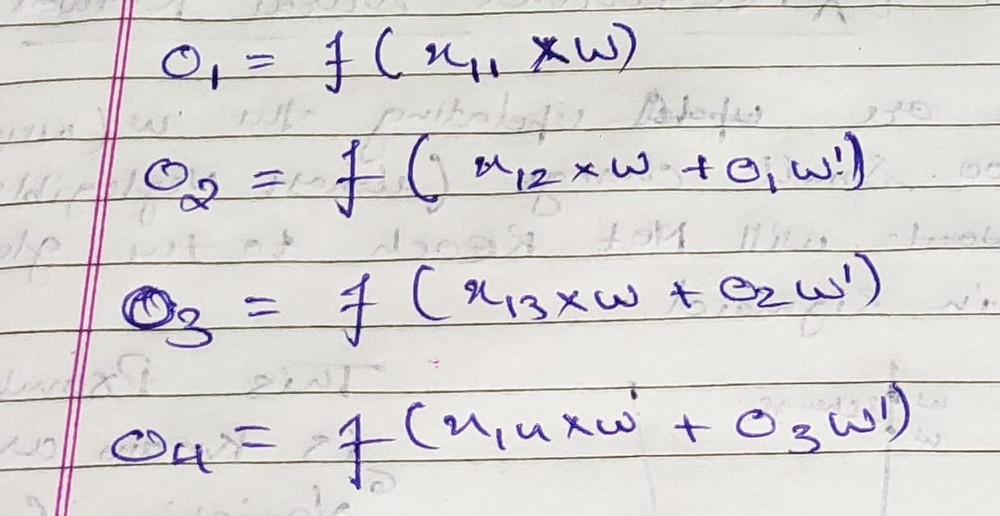 O₁ = f ( x₁₁ × w)
O₂ = f ( x₁₂ × w + O₁ w')
O₃ = f ( x₁₃ × w + O₂ w')
O₄ = f ( x₁₄ × w + O₃ w')